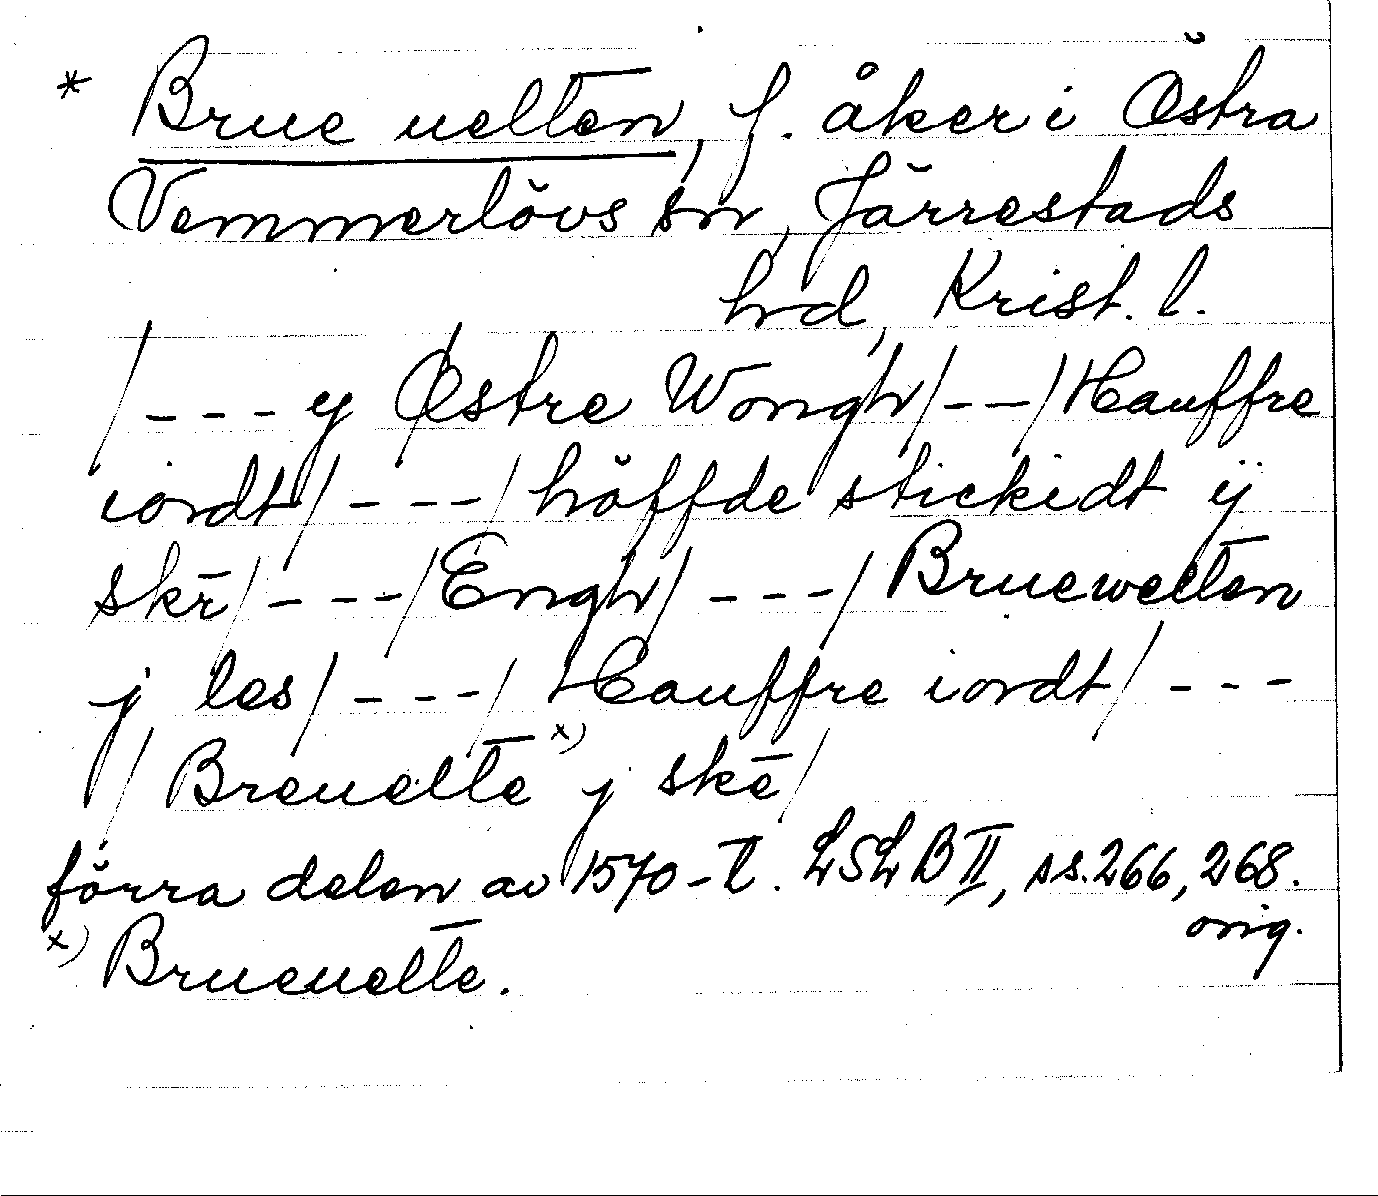 * Brue uelten, f. åker i Östra
Vemmerlövs sn, Järrestads
hd, Krist. l.
/--- y Østre Wongh/--/Hauffre
iordt/---/höffde stickidt ij
skr̄/---/Engh/---/Bruewelten
j les/---/Hauffre iordt/---
/Breuelt̄e x) j skē/
förra delen av 1570-t̄. LSLB II, ss. 266, 268.
orig.
x) Brueuelt̄e.